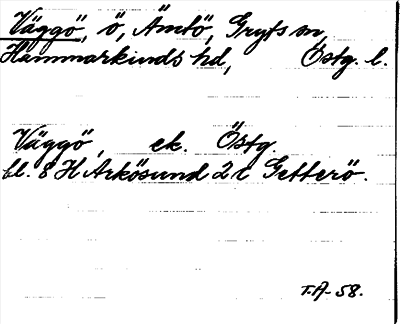 Väggö, ö, Ämtö, Gryts sn,
Hammarkinds hd, Östg. l.
Väggö, ek. Östg.
bl. 8 H Arkösund 2 c Getterö.
T.A. 58.